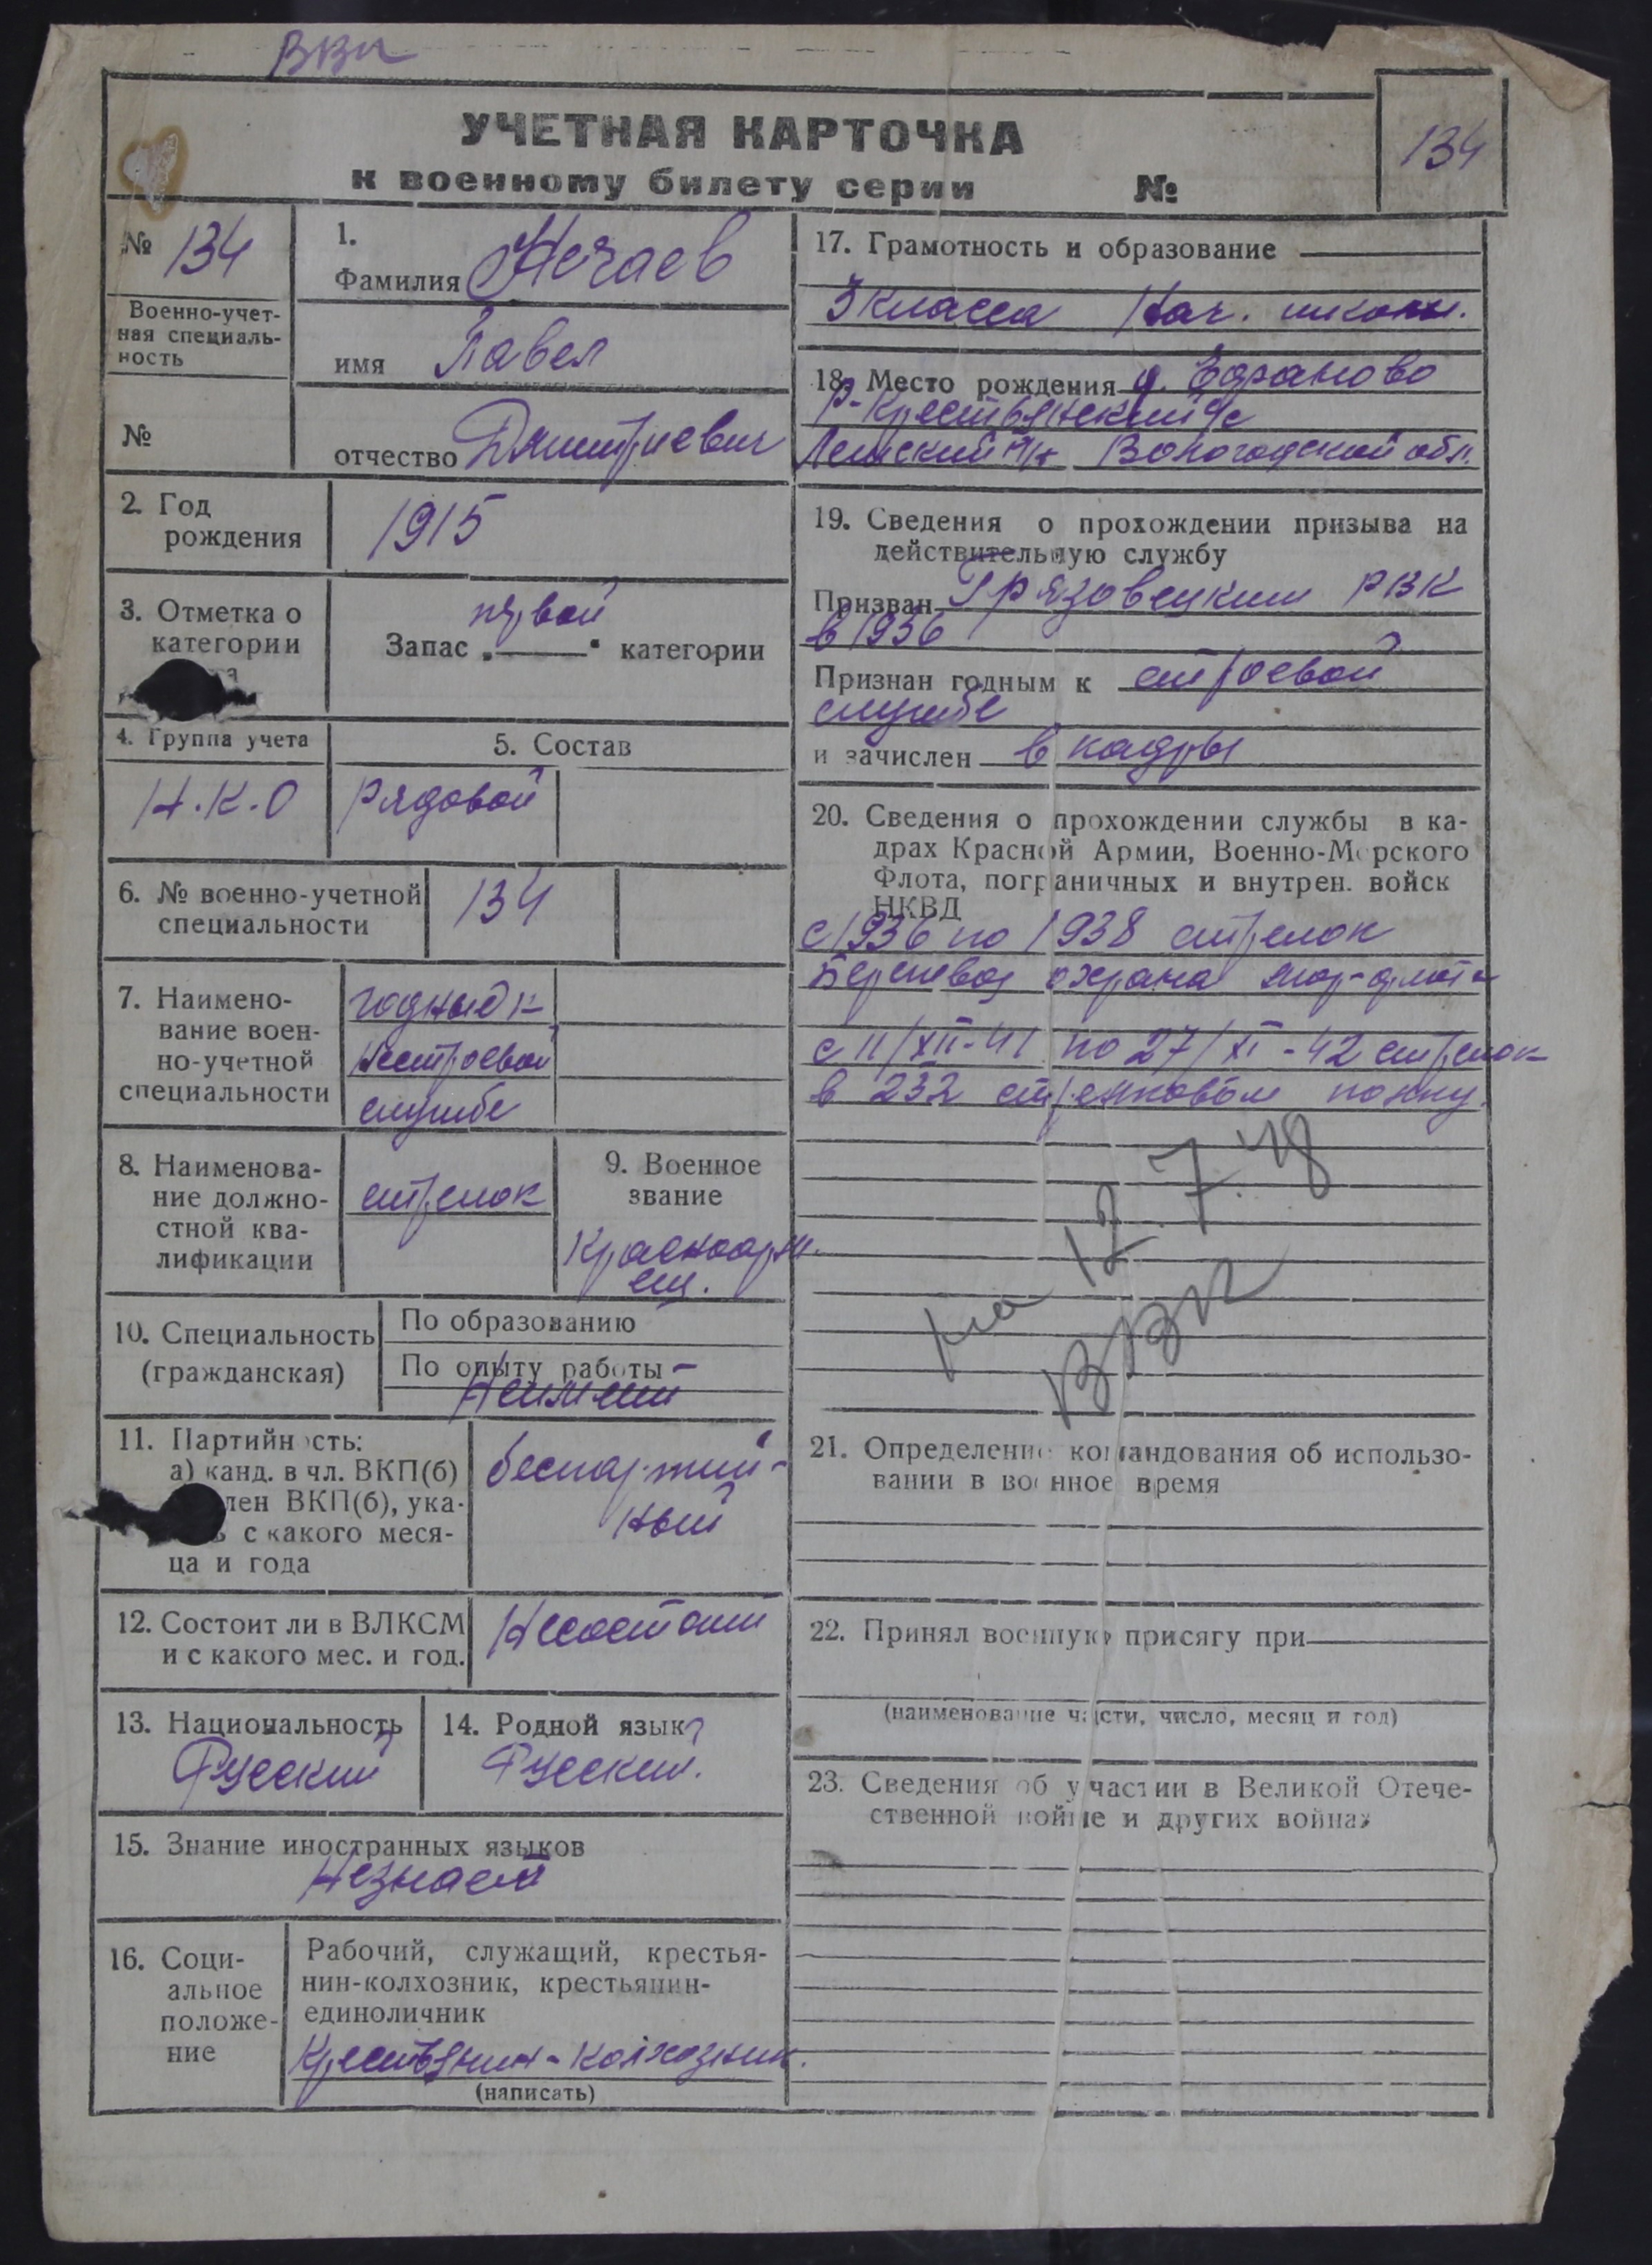 ВВК
УЧЕТНАЯ КАРТОЧКА
к военному билету серии №
134
№ 134
Военно-учет-
ная специаль-
ность
№
1.
Фамилия Нечаев
имя Павел
отчество Дмитриевич
2. Год
рождения
1915
3. Отметка о
категории
Запас „первой“ категории
4. Группа учета
Н.К.О
5. Состав
Рядовой
6. № военно-учетной
специальности
134
7. Наимено-
вание воен-
но-учетной
специальности
годный к
нестроевой
службе
8. Наименова-
ние должно-
стной ква-
лификации
стрелок
9. Военное
звание
Красноарм.
ец.
10. Специальность
(гражданская)
По образованию
По опыту работы –
Неимеет
11. Партийность:
а) канд. в чл. ВКП(б)
лен ВКП(б), ука-
ь с какого меся-
ца и года
беспартий-
ный
12. Состоит ли в ВЛКСМ
и с какого мес. и год.
Несостоит
13. Национальность
Русский
14. Родной язык
Русский.
15. Знание иностранных языков
Незнает
16. Соци-
альное
положе-
ние
Рабочий, служащий, крестья-
нин-колхозник, крестьянин-
единоличник
Крестьянин-колхозник.
(написать)
17. Грамотность и образование
3 класса Нач. школы.
18. Место рождения д.
Р-Крестьянский с/с
р/н Вологодской обл.
19. Сведения о прохождении призыва на
действительную службу
Призван Грязовецким РВК
в 1936
Признан годным к строевой
службе
и зачислен в кадры
20. Сведения о прохождении службы в ка-
драх Красной Армии, Военно-Морского
Флота, пограничных и внутрен. войск
НКВД
с 1936 по 1938 стрелок
охрана мор-флота
с 11/XII-41 по 27/XI-42 стрелок
в 232 стрелковом полку.
на 12.7.48
ВВК
21. Определение командования об использо-
вании в военное время
22. Принял военную присягу при
(наименование части, число, месяц и год)
23. Сведения об участии в Великой Отече-
ственной войне и других войнах